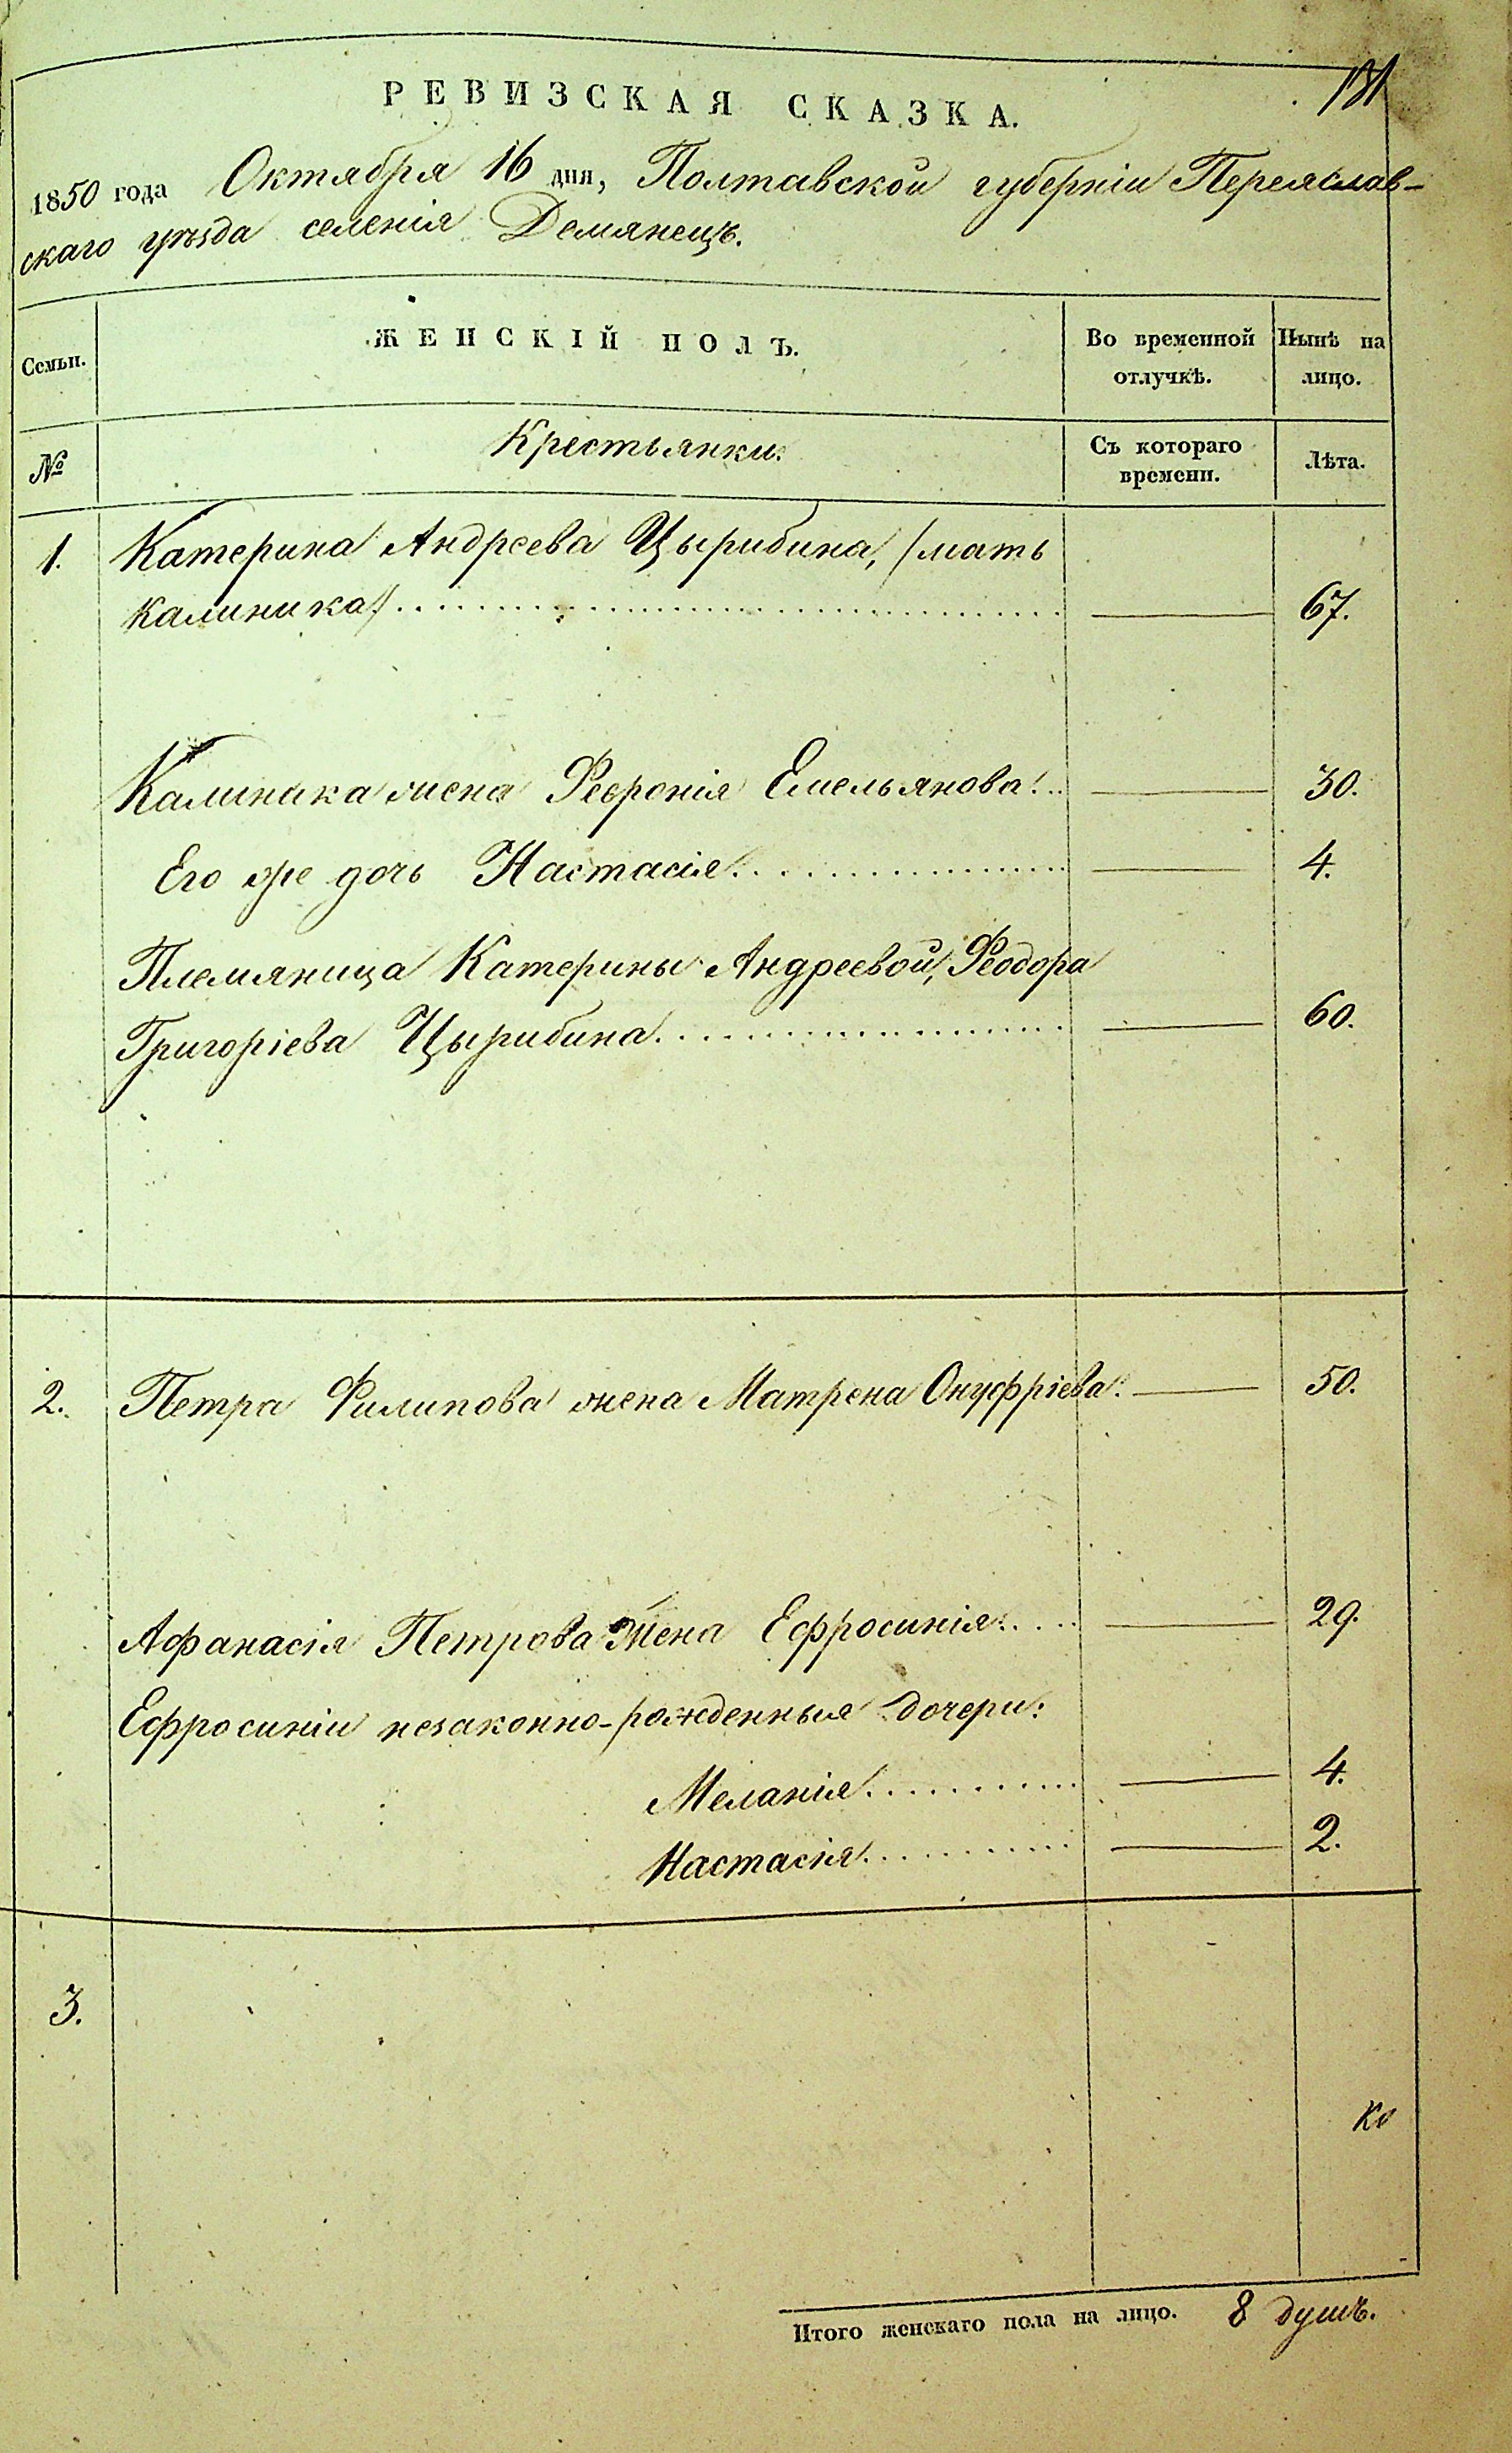 131
РЕВИЗСКАЯ СКАЗКА.
1850 года Октября 16 дня, Полтавской губерніи Переяслав-
скаго уѣзда селенія Демянецъ.
Семьи.
ЖЕНСКІЙ ПОЛЪ.
Во временной отлучкѣ.
Нынѣ на лицо.
№
Крестьянки:
Съ котораго времени.
Лѣта.
1. Катерина Андреева Цырибина, (мать
Калиника) 67.
Калиника жена Феѳронія Емельянова 30.
Его же дочь Настасія 4.
Племяница Катерины Андреевой, Феодора
Григоріева Цырибина 60.
2. Петра Филипова жена Матрена Онуфріева 50.
Афанасія Петрова Жена Ефросинія 29.
Ефросиніи незаконно-рожденныя дочери:
Меланія 4.
Настасія 2.
3.
Итого женскаго пола на лицо. 8 душъ.